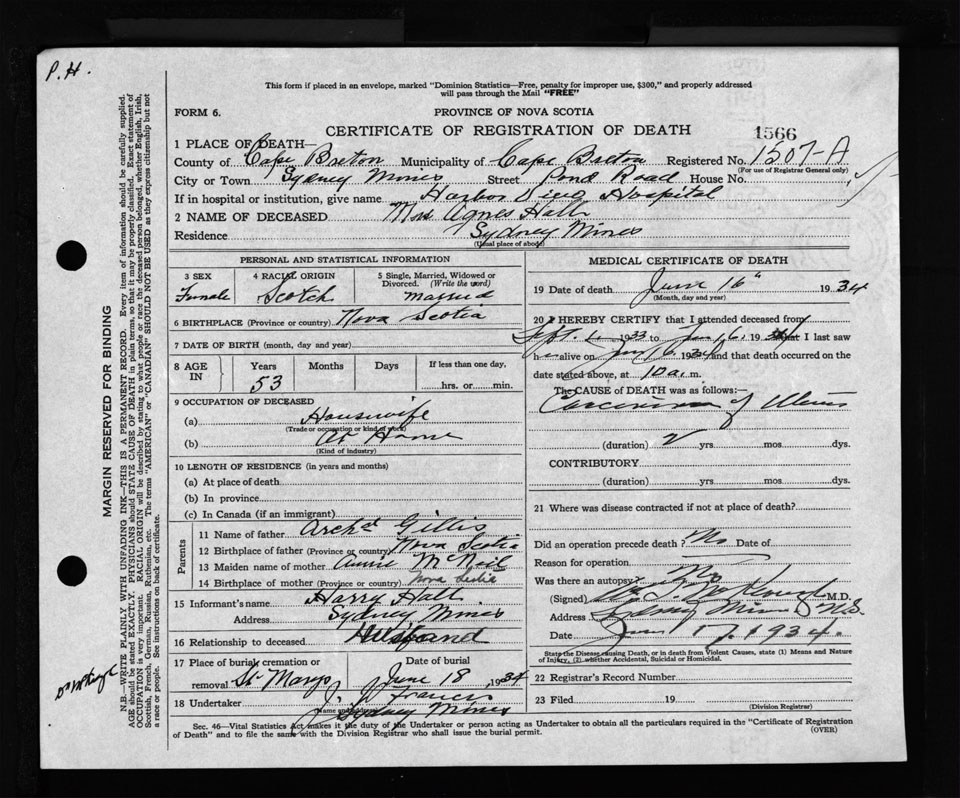 P.H.
This form if placed in an envelope, marked "Dominion Statistics—Free, penalty for improper use, $300," and properly addressed
will pass through the Mail "FREE"
FORM 6.
PROVINCE OF NOVA SCOTIA
CERTIFICATE OF REGISTRATION OF DEATH
1566
1 PLACE OF DEATH—
County of Cape Breton Municipality of Cape Breton Registered No. 1507-A
(For use of Registrar General only)
City or Town Sydney Mines Street Pond Road House No.
If in hospital or institution, give name Harbor View Hospital
2 NAME OF DECEASED Mrs Agnes Hall
Residence Sydney Mines
(Usual place of abode)
PERSONAL AND STATISTICAL INFORMATION
3 SEX Female
4 RACIAL ORIGIN Scotch
5 Single, Married, Widowed or Divorced. (Write the word) Married
6 BIRTHPLACE (Province or country) Nova Scotia
7 DATE OF BIRTH (month, day and year)
8 AGE IN Years 53 Months Days If less than one day, hrs. or min.
9 OCCUPATION OF DECEASED
(a) Housewife
(Trade or occupation or kind of work)
(b) At Home
(Kind of industry)
10 LENGTH OF RESIDENCE (in years and months)
(a) At place of death
(b) In province
(c) In Canada (if an immigrant)
Parents
11 Name of father Archd Gillis
12 Birthplace of father (Province or country) Nova Scotia
13 Maiden name of mother Annie McNeil
14 Birthplace of mother (Province or country) Nova Scotia
15 Informant's name Harry Hall
Address Sydney Mines
16 Relationship to deceased Husband
17 Place of burial, cremation or removal St. Marys
Date of burial June 18, 1934
18 Undertaker J. J. Francis
Sydney Mines
MEDICAL CERTIFICATE OF DEATH
19 Date of death June 16" 1934
(Month, day and year)
20 I HEREBY CERTIFY that I attended deceased from
Sept. 1933 to 16, 19 that I last saw
her alive on 16 1934 and that death occurred on the
date stated above, at 10 a. m.
The CAUSE of DEATH was as follows:—
Carcinoma of Uterus
(duration) 2 yrs. mos. dys.
CONTRIBUTORY
(duration) yrs. mos. dys.
21 Where was disease contracted if not at place of death?
Did an operation precede death? No Date of
Reason for operation
Was there an autopsy No
(Signed) M.D.
Address Sydney Mines N.S.
Date June 17, 1934.
State the Disease causing Death, or in death from Violent Causes, state (1) Means and Nature
of Injury, (2) whether Accidental, Suicidal or Homicidal.
22 Registrar's Record Number
23 Filed 19
(Division Registrar)
Sec. 46—Vital Statistics Act, makes it the duty of the Undertaker or person acting as Undertaker to obtain all the particulars required in the "Certificate of Registration
of Death" and to file the same with the Division Registrar who shall issue the burial permit.
(OVER)
MARGIN RESERVED FOR BINDING
N.B.—WRITE PLAINLY WITH UNFADING INK—THIS IS A PERMANENT RECORD. Every item of information should be carefully supplied.
AGE should be stated EXACTLY. PHYSICIANS should STATE CAUSE OF DEATH in plain terms, so that it may be properly classified. Exact statement of
OCCUPATION is very important. RACIAL ORIGIN will be described by stating to what people or race the deceased person belonged, whether English, Irish,
Scottish, French, German, Russian, Ruthenian, etc. The terms "AMERICAN" or "CANADIAN" SHOULD NOT BE USED as they express citizenship but not
a race or people. See instructions on back of certificate.